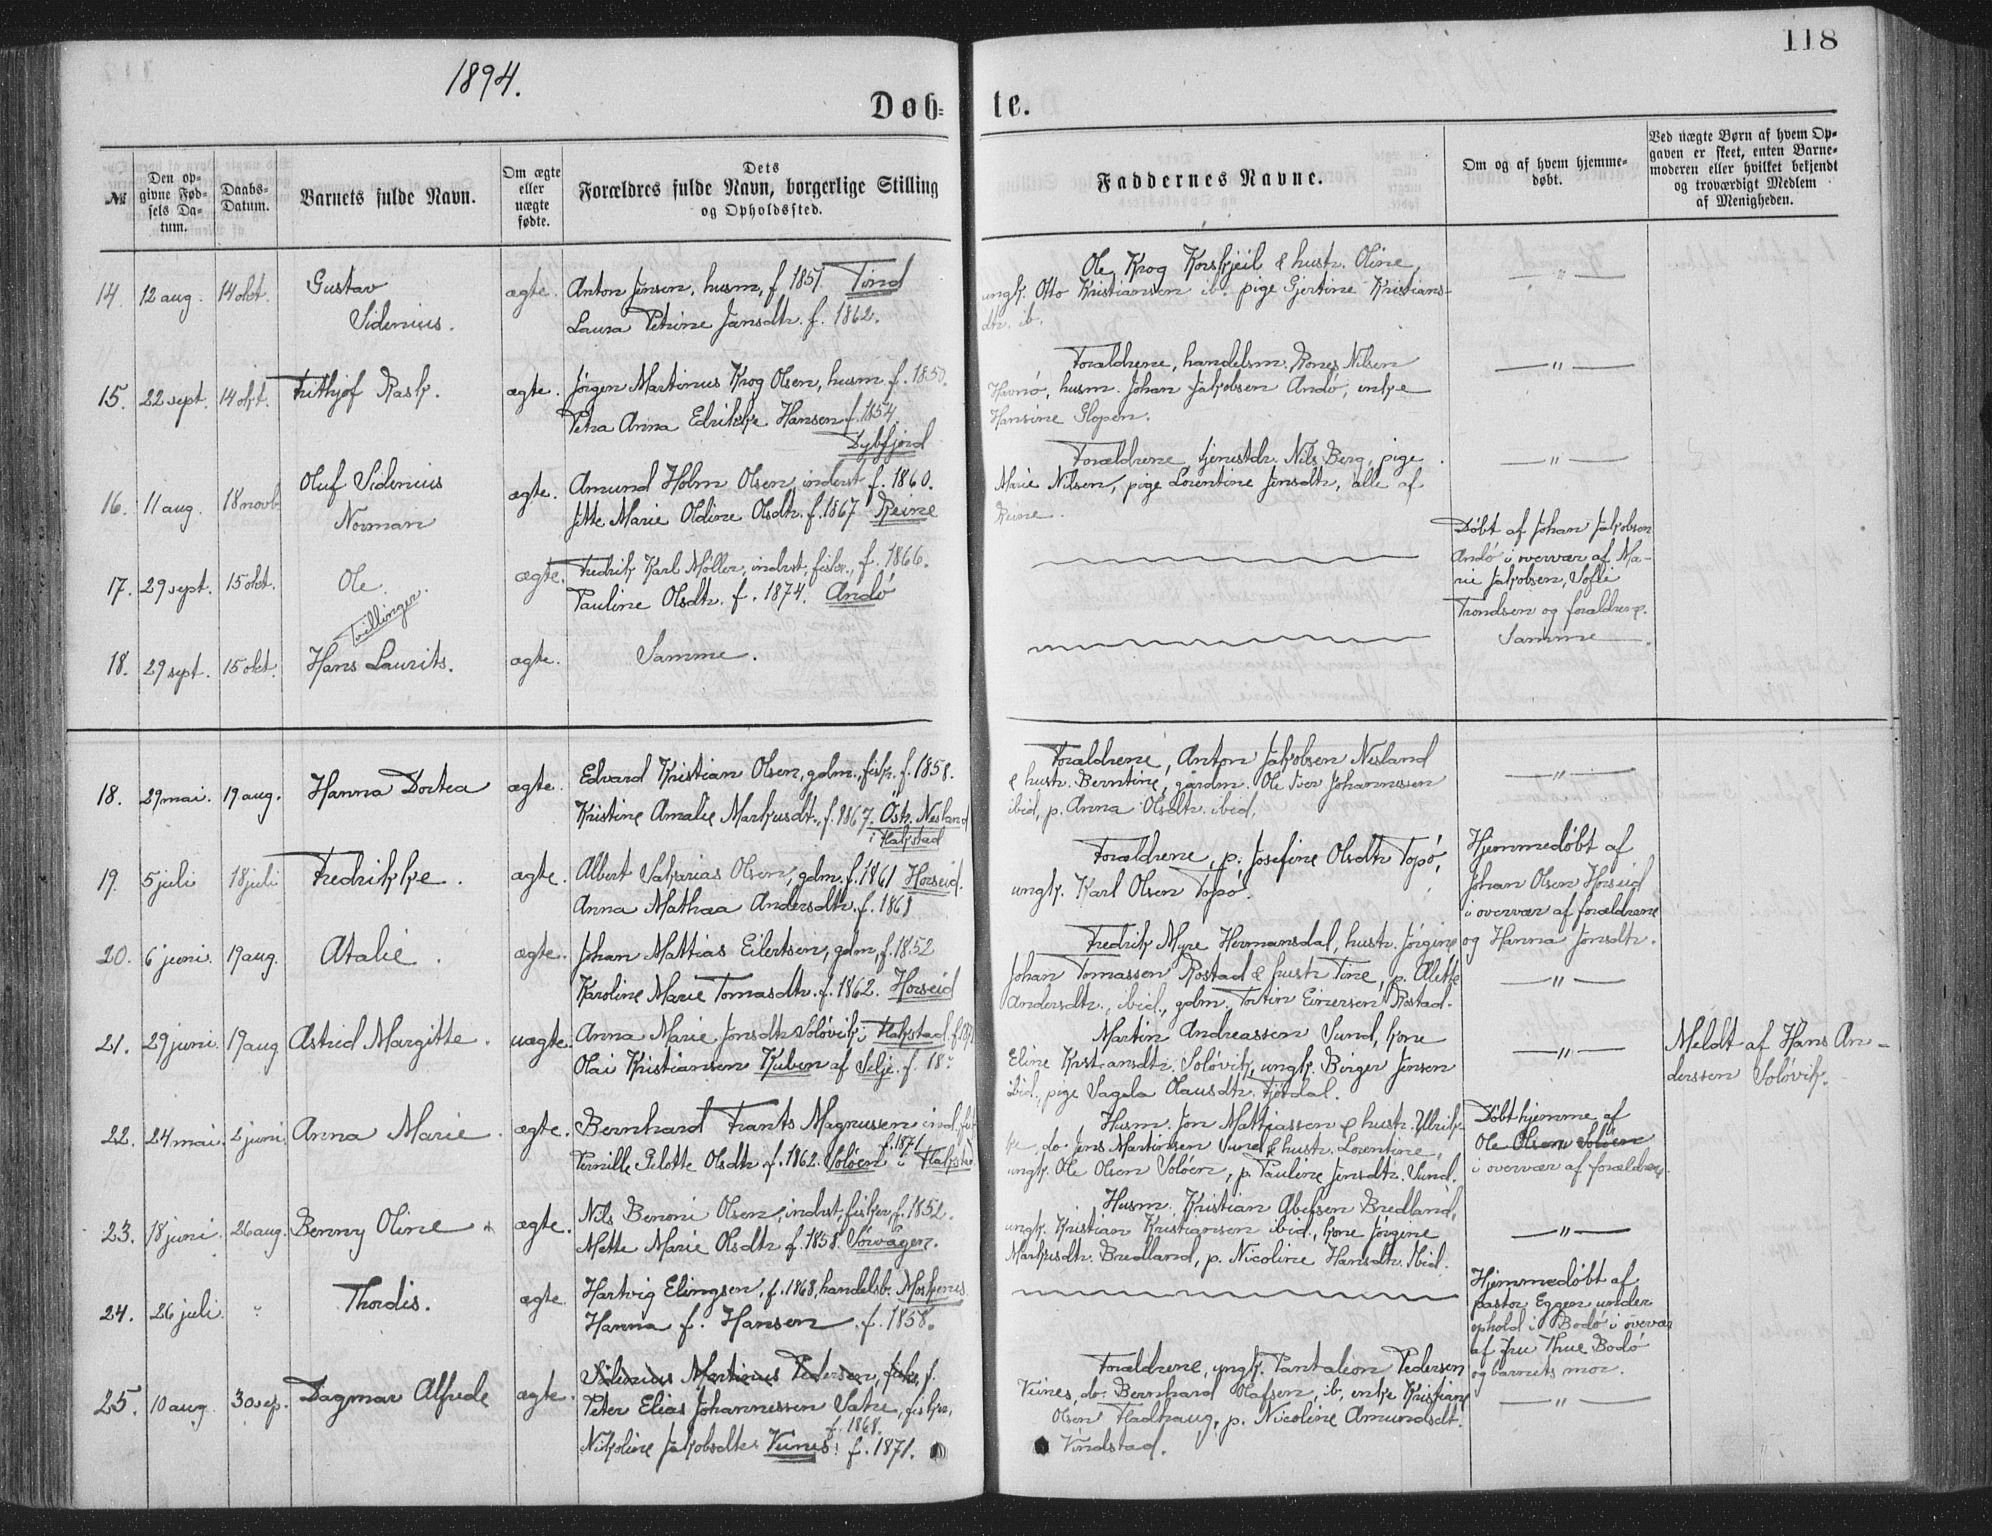 118
1894.
Døb-
te.
№
Den op-
givne Fød-
sels Da-
tum.
Daabs-
Datum.
Barnets fulde Navn.
Om ægte
eller
uægte
fødte.
Dets
Forældres fulde Navn, borgerlige Stilling
og Opholdssted.
Faddernes Navne.
Om og af hvem hjemme-
døbt.
Ved uægte Børn af hvem Op-
gaven er skeet, enten Barne-
moderen eller hvilket bekjendt
og troværdigt Medlem
af Menigheden.
14. 12 aug. 14 okt. Gustav
Sidenius.
ægte. Anton Jensen, husm, f 1857 Tind
Laura Petrine Jansdtr. f. 1862.
Ole Krog Korskjeil & hustr. Oline,
ungk. Otto Kristiansen ib. pige Gjertine Kristians-
dtr. ib.
— " —
15. 22 sept. 14 okt. Frithjof Rask. ægte. Jörgen Martinus Krog Olsen, husm. f. 1850.
Petra Anna Edrikke Hansen f. 1854.
Dybfjord
Forældrene, handelsm. Rones Nilsen
Havnö, husm. Johan Jakobsen Andö, enke
Hansine Glopen.
— " —
16. 11 aug. 18 novb. Oluf Sidenius
Norman
ægte. Amund Holm Olsen, inderst f. 1860.
Jette Marie Oldine Olsdtr. f. 1867 Reine
Forældrene, tjenestdr. Nils Berg, pige
Marie Nilsen, pige Lorentine Jensdtr, alle af
Reine.
— " —
17. 29 sept. 15 okt. Ole. ægte. Fredrik Karl Möller, indrst, fisker, f. 1866.
Pauline Olsdtr. f. 1874. Andö
Döbt af Johan Jakobsen
Andö i overvær af Ma-
rie Jakobsen, Sofie
Trondsen og forældrene.
Tvillinger.
18. 29 sept. 15 okt. Hans Laurits. ægte. Samme.
Samme
18. 29 mai. 19 aug. Hanna Dortea ægte. Edvard Kristian Olsen, gdm., fisk. f. 1858.
Kristine Amalie Markusdtr., f. 1867. Östr. Nesland
i Flakstad
Forældrene, Anton Jakobsen Nesland
& hustr. Berntine, gårdm. Ole Iver Johannessen
ibid, p. Anna Olsdtr. ibid.
— " —
19. 5 juli 18 juli Fredrikke. ægte. Albert Sakarias Olsen, gdm. f. 1861 Horseid.
Anna Mathea Andersdtr. f. 1868
Forældrene, p. Josefine Olsdtr Topö,
ungk. Karl Olsen Topö.
Hjemmedöbt af
Johan Olsen Horseid
i overvær af forældrene
og Hanna Jonsdtr.
20. 6 juni. 19 aug. Atalie. ægte. Johan Mattias Eilertsen, gdm, f. 1852
Karoline Marie Tomasdtr. f. 1862. Horseid
Fredrik Myre Hermansdal, hustr. Jörgine
Johan Tomassen Rostad & hustr Tine, p. Alette
Andersdtr., ibid., gdm. Tortin Einersen Rostad.
— " —
21. 29 juni. 19 aug Astrid Margitte. uægte. Anna Marie Jonsdtr. Solövik i Flakstad.
Olai Kristiansen Kuben af Selje. f. 18
Martin Andreassen Sund, kone
Eline Kristiansdtr. Solövik, ungk. Birger Jensen
ibid., pige Sagala Olausdtr. Fjordal.
— " —
Meldt af Hans An-
derssen Solövik.
22. 24 mai. 2 juni. Anna Marie. ægte. Bernhard Frants Magnussen ind. fis
f. 1871
Pernille Pelotte Olsdtr. f. 1862. Solöen i Flakstad
Husm. Jon Mattiassen & hustr. Ulrik-
ke, do. Jens Martinsen Sund & hustr. Lorentine,
ungk. Ole Olsen Solöen, p. Pauline Jensdtr. Sund.
Döbt hjemme af
Ole Olsen Solöen
i overvær af forældrene.
23. 18 juni. 26 aug. Benny Oline ægte. Nils Benoni Olsen, indrst, fisker, f. 1852.
Mette Marie Olsdtr f. 1858. Sörvågen.
Husm. Kristian Abelsen Bredland,
ungk. Kristian Kristiansen ibid., kone Jörgine
Markusdtr. Bredland, p. Nicoline Hansdtr. Ibid.
— " —
24. 26 juli. " Thordis. ægte. Hartvig Elingsen, f. 1868, handelsb. Moskenes
Hanna f. Hansen f. 1858.
Hjemmedöbt af
pastor Eggen under
ophold i Bodö i overvær
af fru Thue Bodö
og barnets mor.
25. 10 aug 30 sep. Dagmar Alfrede ægte. Sidenius Martinus Pedersen, fisker, f.
Peter Elias Johannessen Satre, fisker,
f. 1868.
Nikoline Jakobsdtr Vines: f. 1871.
Forældrene, ungk. Pantaleon Pedersen
Vines, do. Bernhard Olafsen, ib, enke Kristiane
Olsen Fladhaug, p. Nicoline Amundsdt.
Vindstad.
— " —